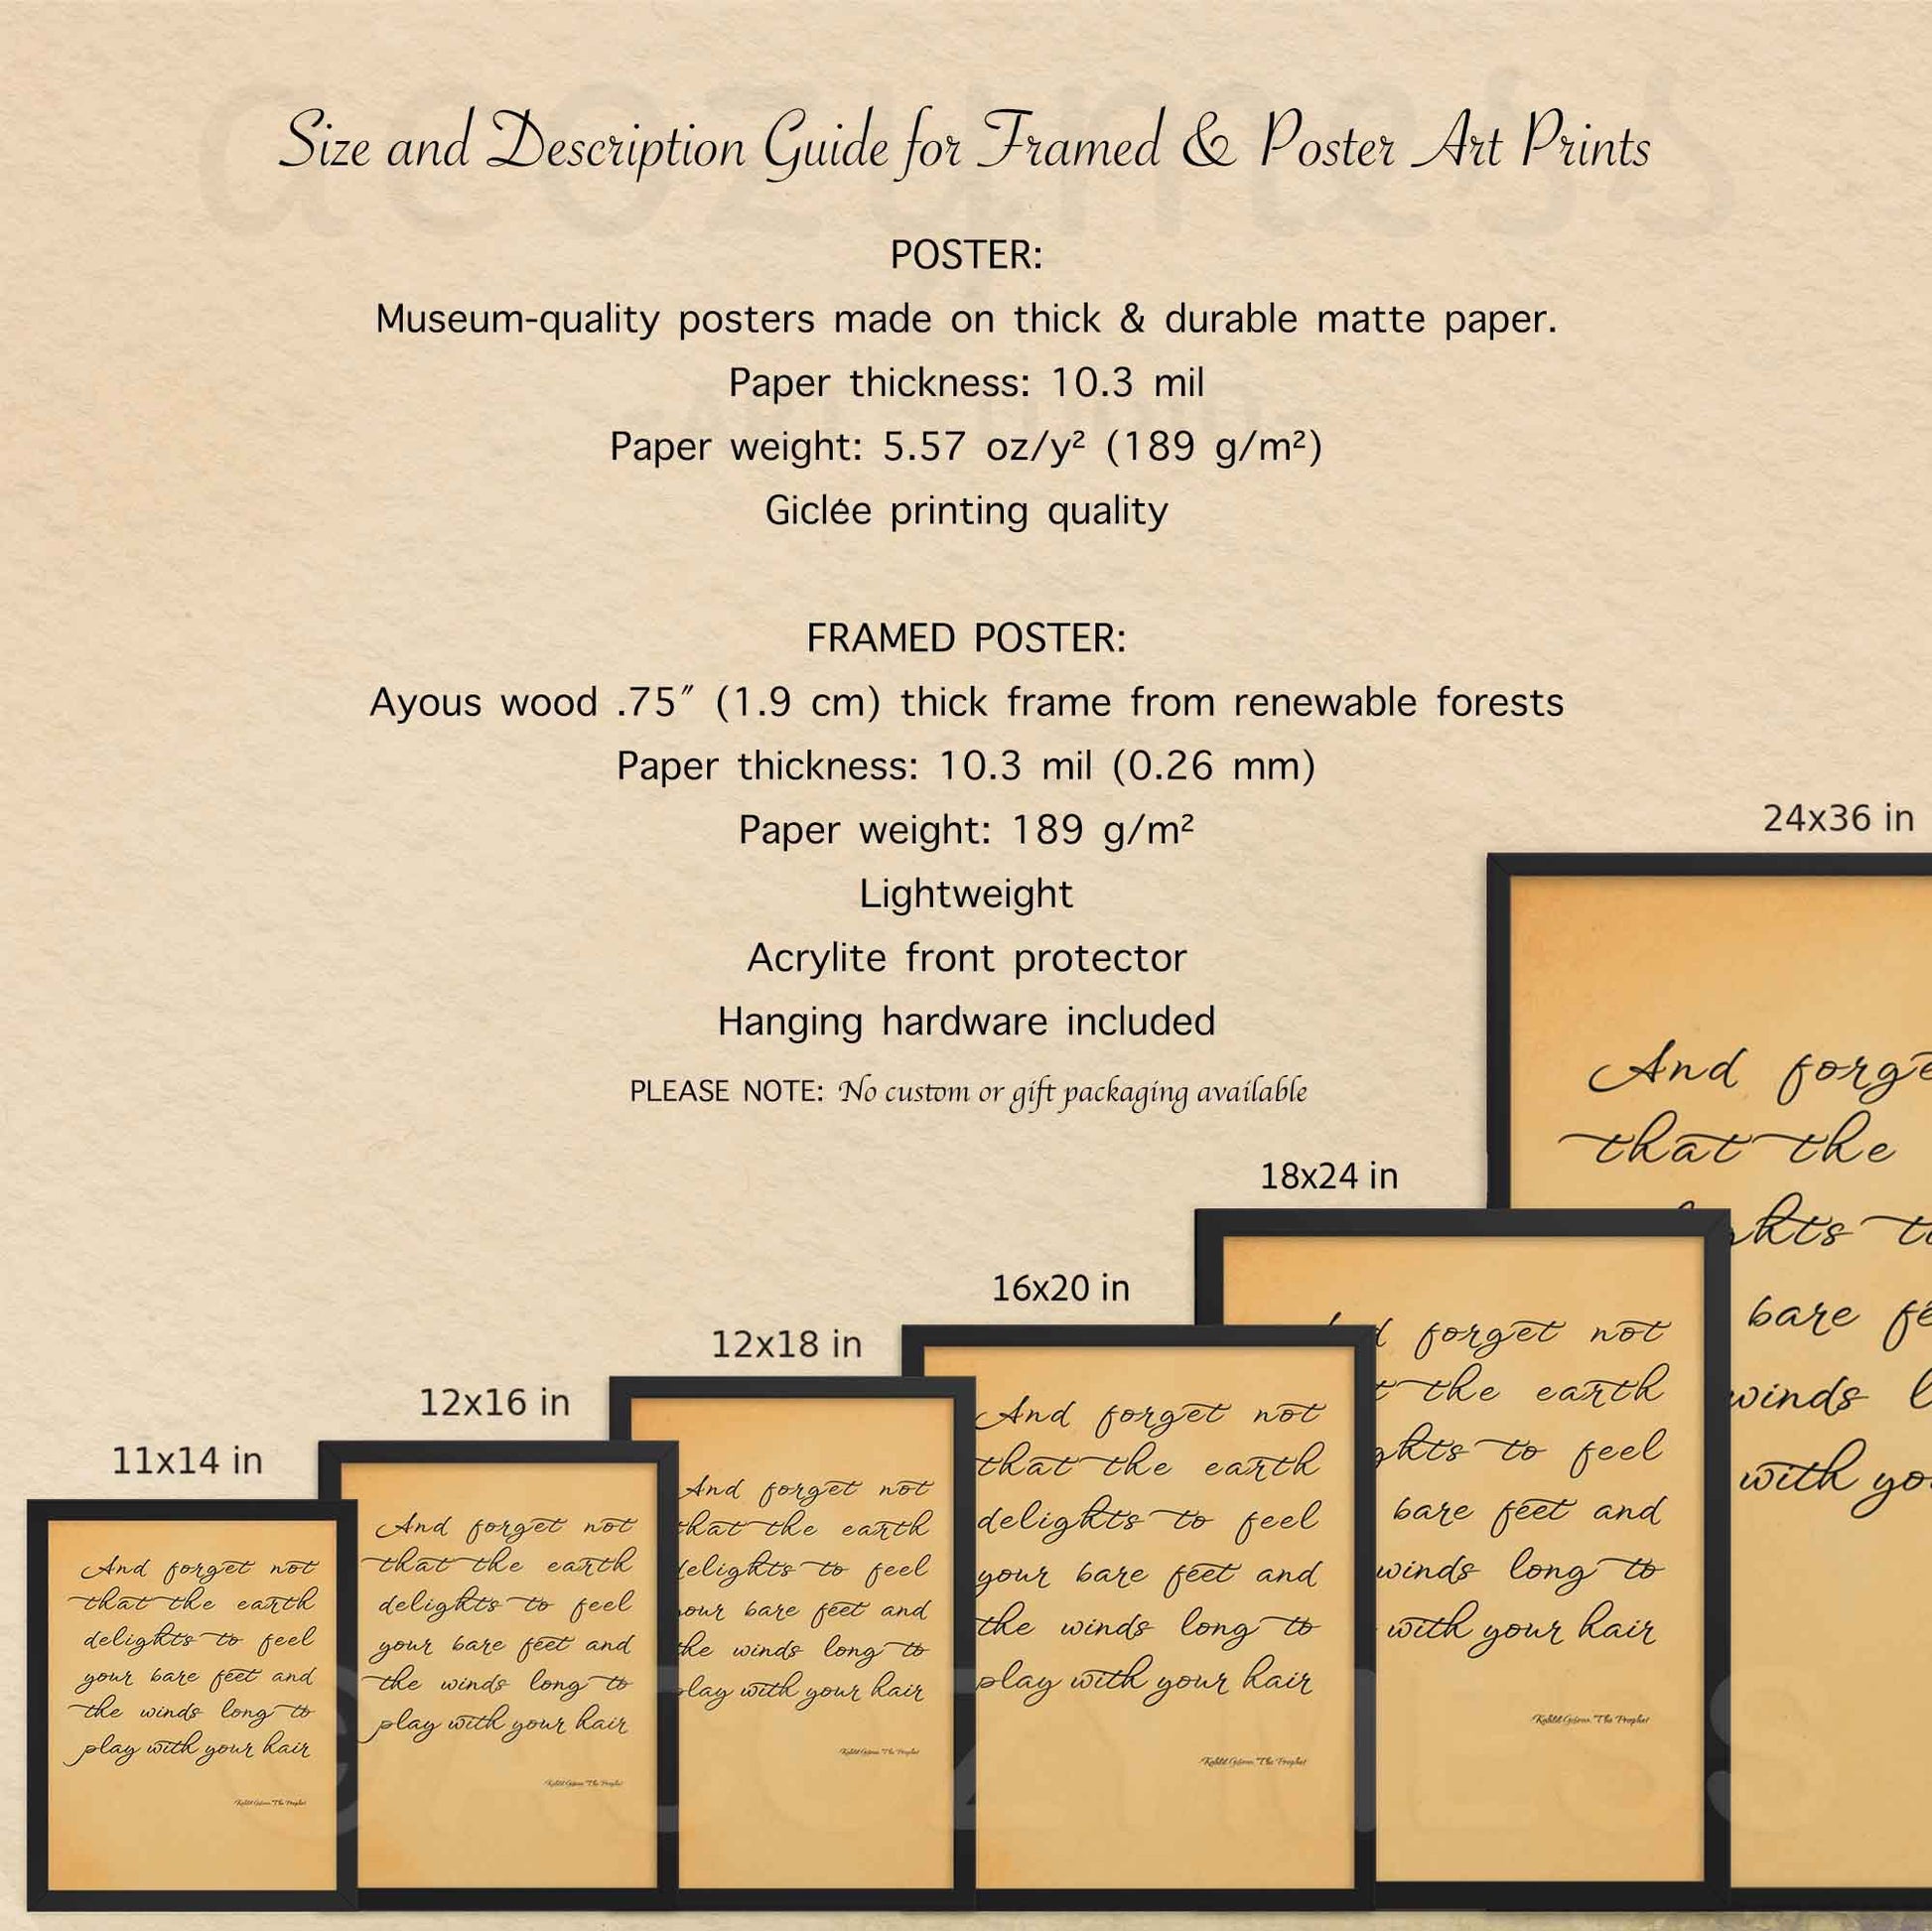 Size and Description Guide for Framed & Poster Art Prints
POSTER:
Museum-quality posters made on thick & durable matte paper.
Paper thickness: 10.3 mil
Paper weight: 5.57 oz/y² (189 g/m²)
Giclée printing quality
FRAMED POSTER:
Ayous wood .75″ (1.9 cm) thick frame from renewable forests
Paper thickness: 10.3 mil (0.26 mm)
Paper weight: 189 g/m²
Lightweight
Acrylite front protector
Hanging hardware included
PLEASE NOTE: No custom or gift packaging available
11x14 in
And forget not
that the earth
delights to feel
your bare feet and
the winds long to
play with your hair
Kahlil Gibran, The Prophet
12x16 in
And forget not
that the earth
delights to feel
your bare feet and
the winds long to
play with your hair
Kahlil Gibran, The Prophet
12x18 in
And forget not
that the earth
delights to feel
your bare feet and
the winds long to
play with your hair
Kahlil Gibran, The Prophet
16x20 in
And forget not
that the earth
delights to feel
your bare feet and
the winds long to
play with your hair
Kahlil Gibran, The Prophet
18x24 in
forget not
the earth
ghts to feel
bare feet and
winds long to
with your hair
Kahlil Gibran, The Prophet
24x36 in
And forge
that the
ghts to
bare fe
winds l
with yo